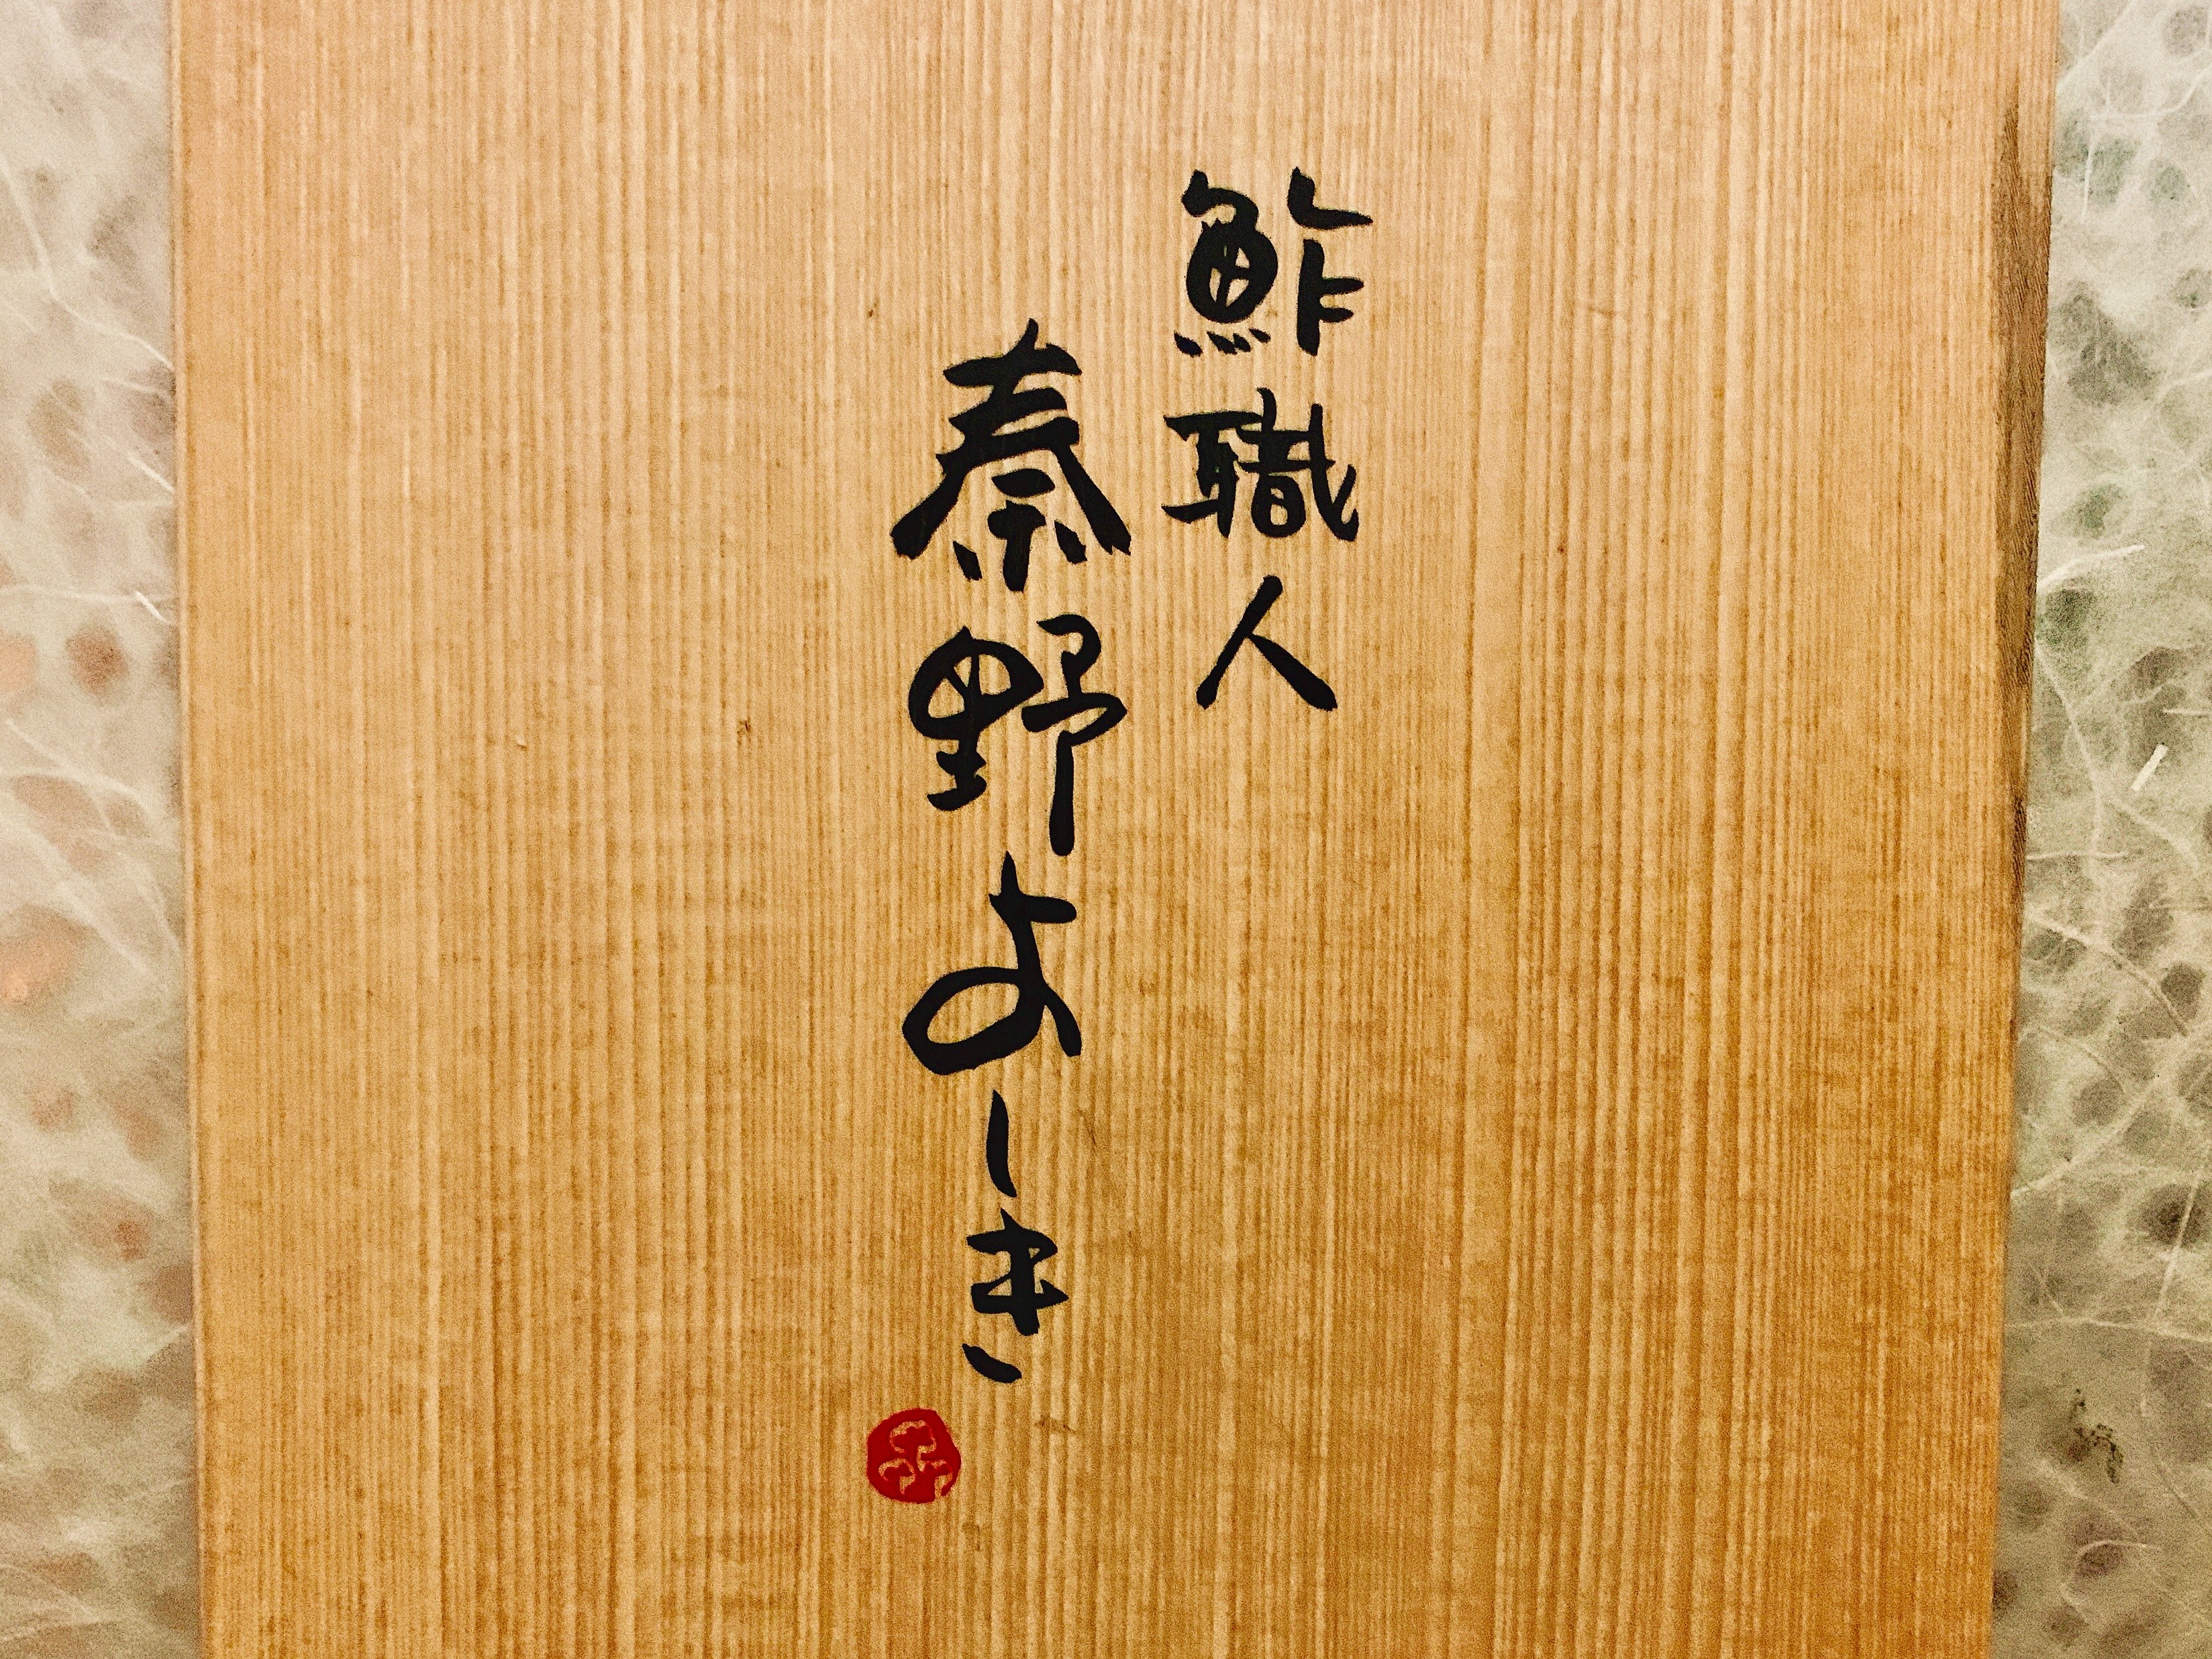 鮓職人
秦野よしき